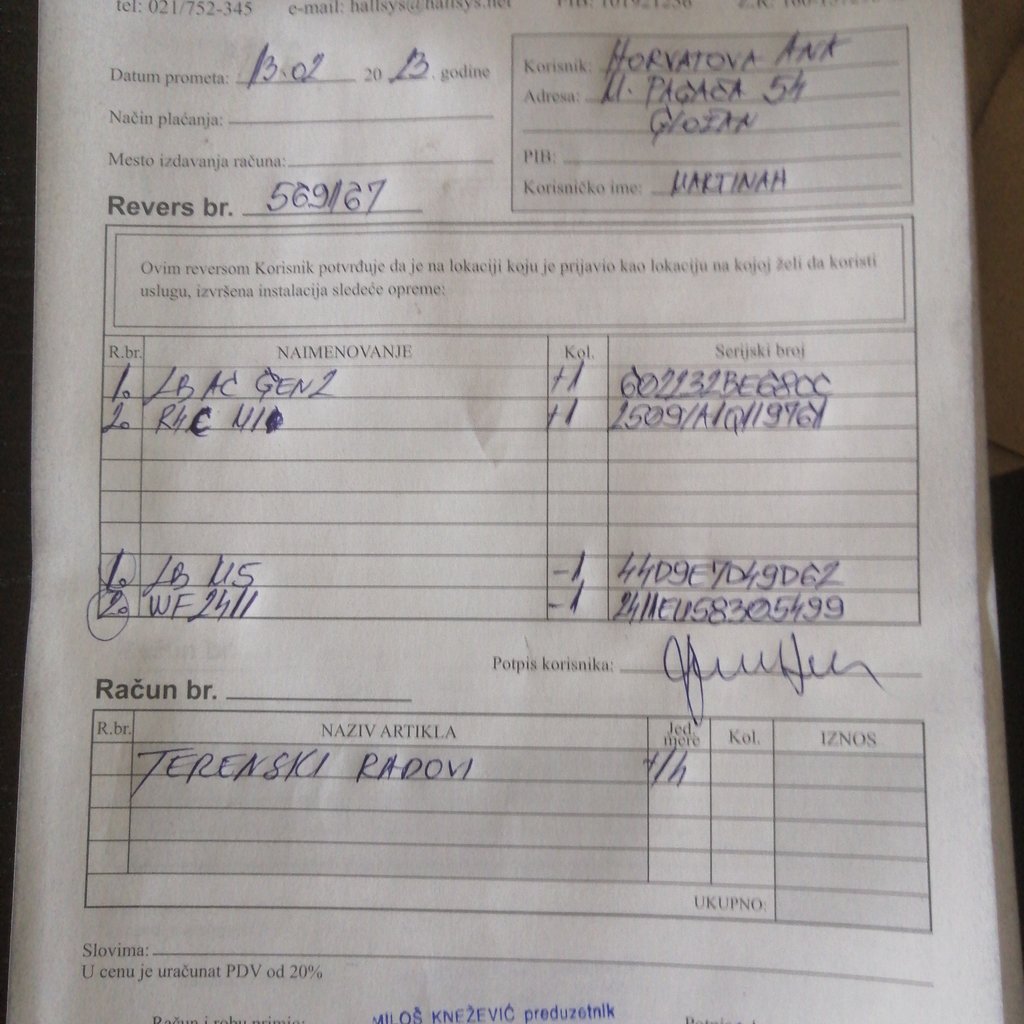 tel: 021/752-345 e-mail: hallsys@hallsys.net PIB: 101921256
Datum prometa: 13.02 20 23. godine
Korisnik: HORVATOVA ANA
Adresa: M. PAGAČA 54
GLOŽAN
Način plaćanja:
Mesto izdavanja računa:
PIB:
Korisničko ime: MARTINAH
Revers br. 569/67
Ovim reversom Korisnik potvrđuje da je na lokaciji koju je prijavio kao lokaciju na kojoj želi da koristi
uslugu, izvršena instalacija sledeće opreme:
R.br. NAIMENOVANJE Kol. Serijski broj
1. LB AC GEN2 +1 602232BE68CC
2. +1
1. LB M5 -1 44D9E7D49D6Z
2. WF2411 -1 2411EU58305499
Potpis korisnika:
Račun br.
R.br. NAZIV ARTIKLA Jed. mere Kol. IZNOS
TERENSKI RADOVI
UKUPNO:
Slovima:
U cenu je uračunat PDV od 20%
Račun i robu primio: MILOŠ KNEŽEVIĆ preduzetnik